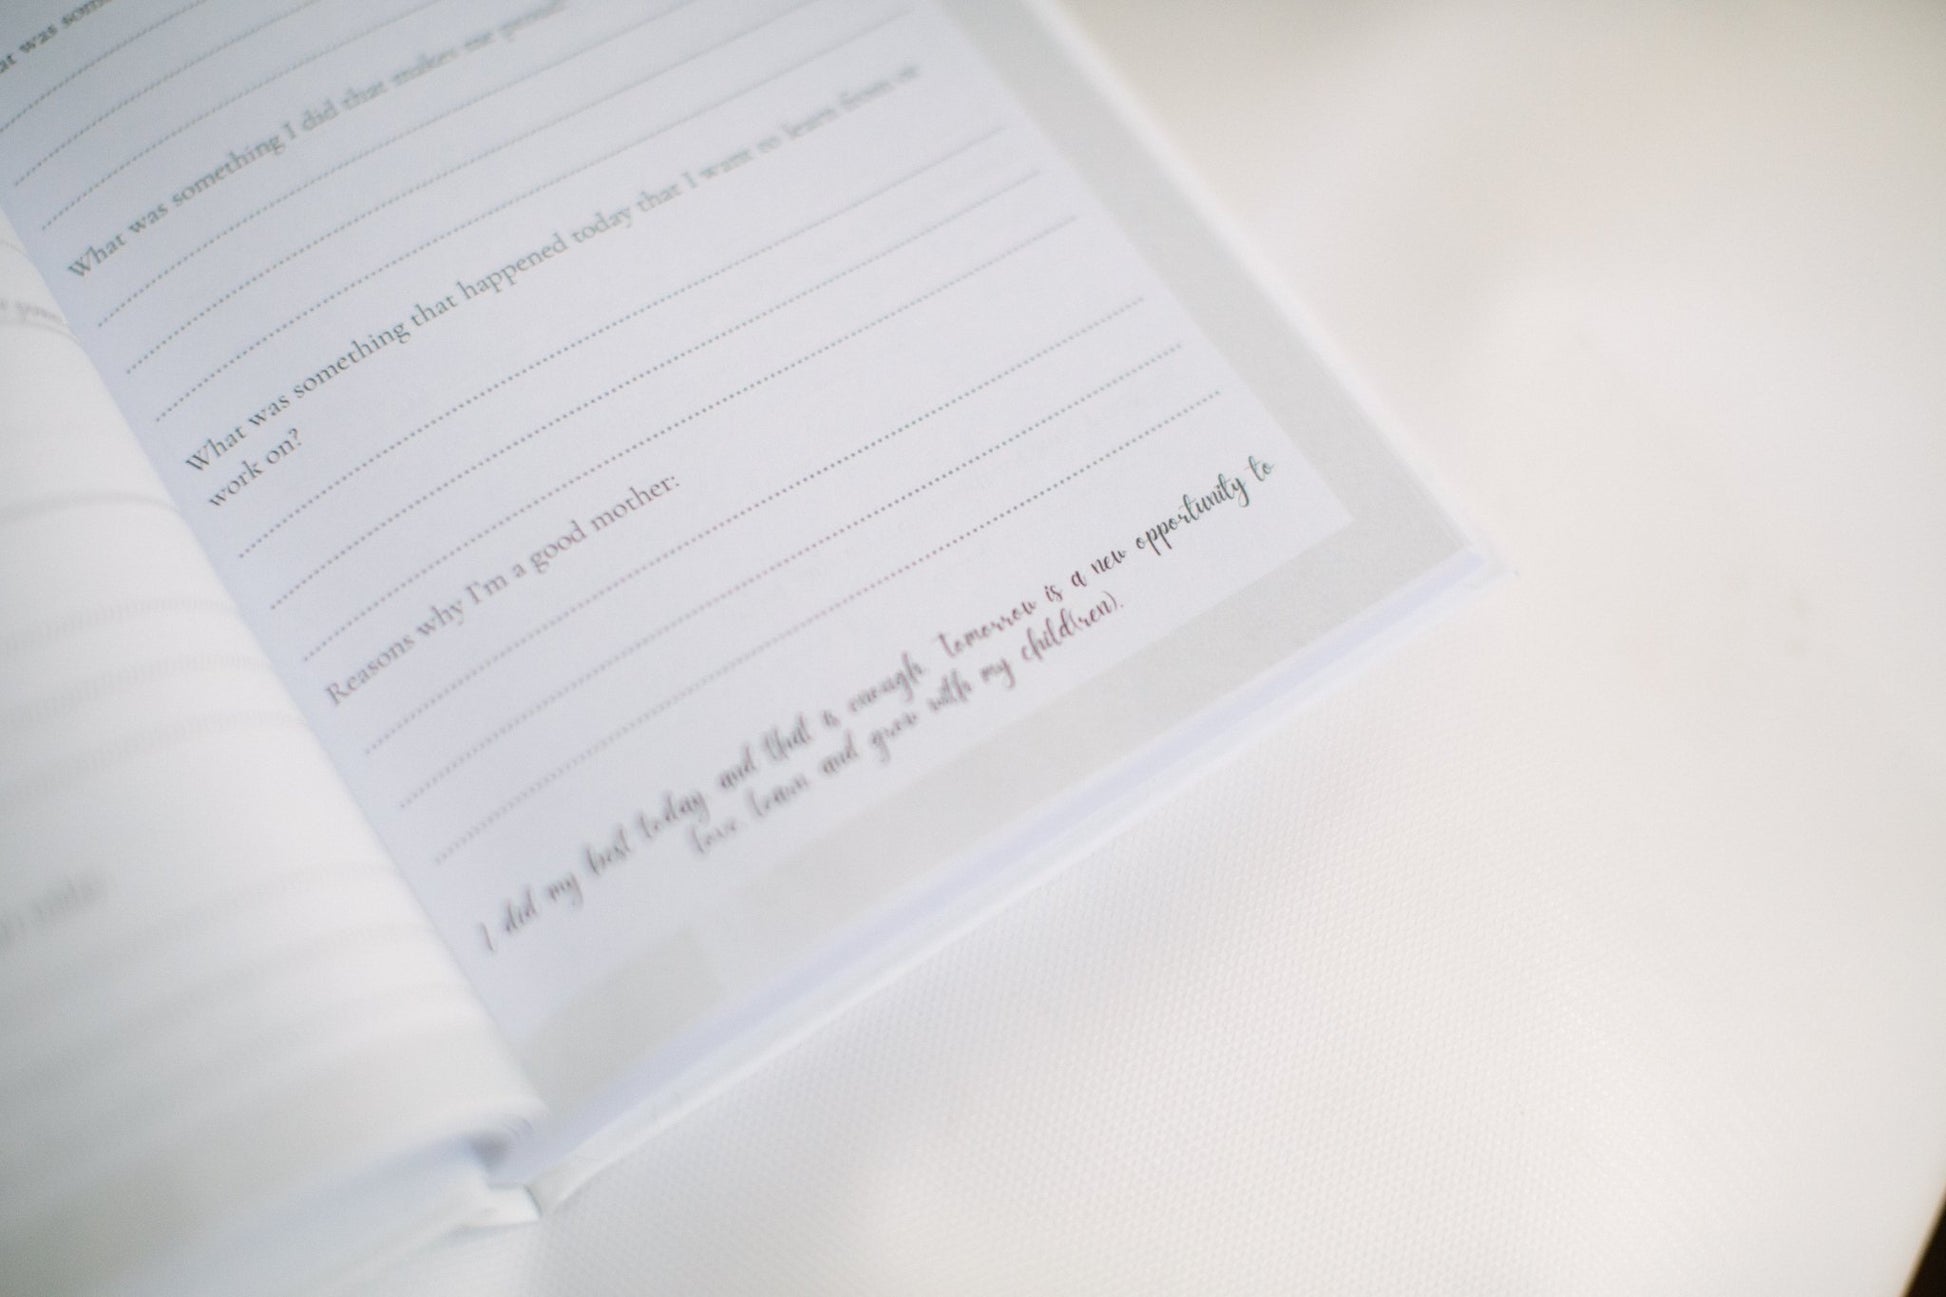 at was som
What was something I did that makes me proud?
What was something that happened today that I want to learn from or
work on?
Reasons why I'm a good mother:
I did my best today and that is enough. Tomorrow is a new opportunity to
love, learn and grow with my child(ren).